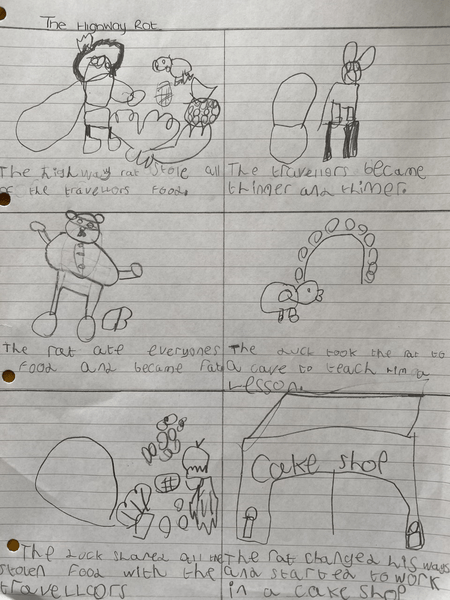 The Highway Rat
The highway rat stole all
of the travellors food.
The travellors became
thinner and thinner.
The rat ate everyones
food and became fat
The duck took the rat to
a cave to teach him a
lesson.
The duck shared all the
stolen food with the
travellors
Cake shop
The rat changed his ways
and started to work
in a cake shop